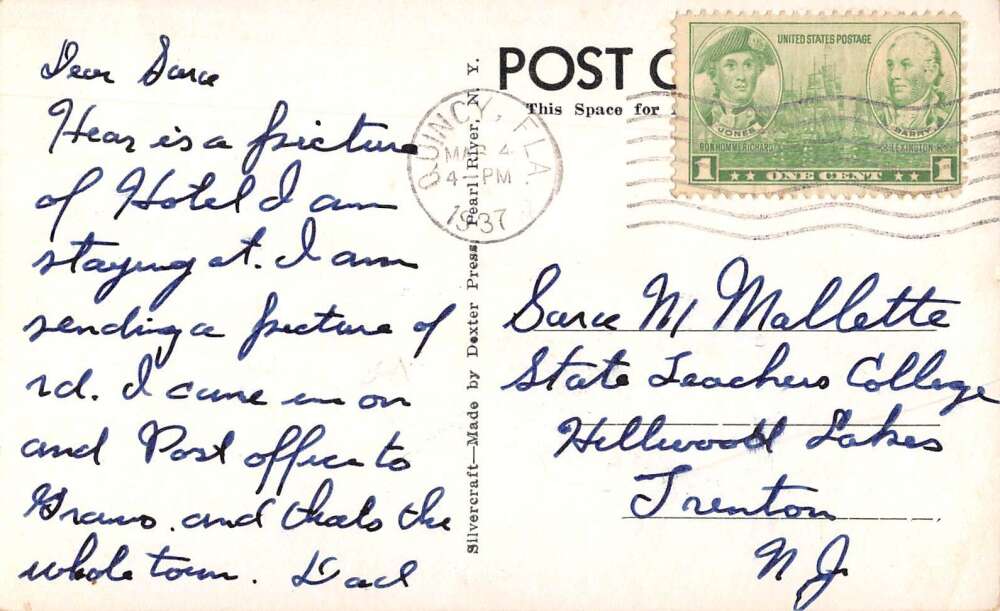 Dear Sara
Hear is a picture
of Hotel I am
staying at. I am
sending a picture of
rd. I came in on
and Post office to
and thats the
whole town. Dad
Silvercraft—Made by Dexter Press, Pearl River, N. Y.
POST C
This Space for
QUINCY, FLA.
MAR 4
4 PM
1937
UNITED STATES POSTAGE
JONES
BARRY
BON HOMME RICHARD
LEXINGTON
1 ONE CENT 1
Sara M Mallette
State Teachers College
Hillwood Lakes
Trenton
N J